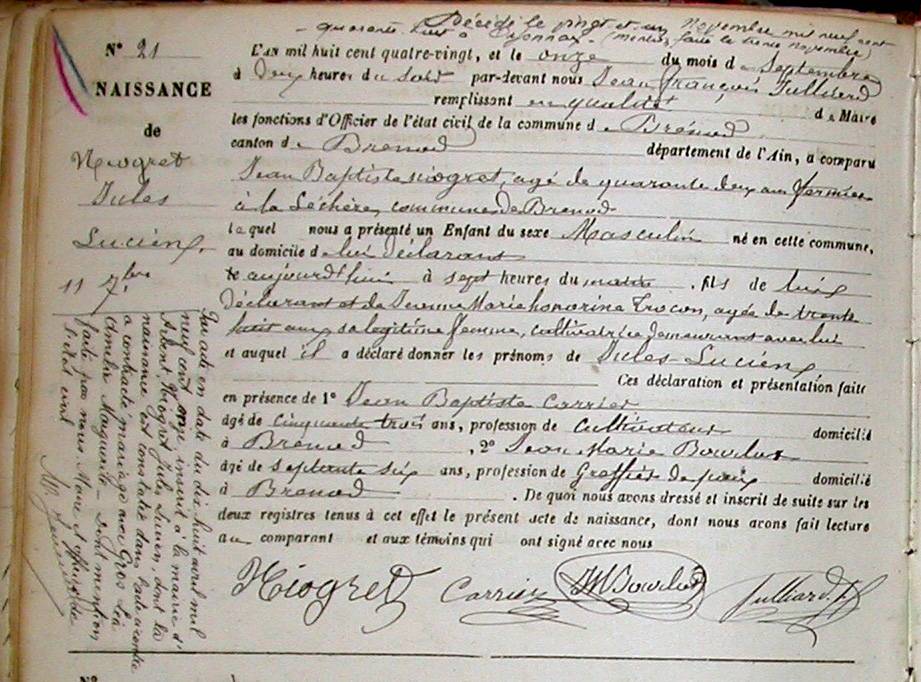 Décédé le vingt et un Novembre mil neuf cent
quarante huit à Oyonnax. (mention faite le novembre)
N° 21
NAISSANCE
de
Niogret
Jules
Lucien
11 7bre
L'an mil huit cent quatre-vingt, et le onze du mois de Septembre
à deux heures du soir par-devant nous Jean François Julliard
remplissant en qualité de Maire
les fonctions d'Officier de l'état civil de la commune de Brénod
canton de Brenod département de l'Ain, a comparu
Jean Baptiste Niogret, agé de quarante deux ans fermier
à la Léchère, commune de Brenod
lequel nous a présenté un Enfant du sexe Masculin né en cette commune,
au domicile de lui Déclarant
le aujourd'hui à sept heures du matin, fils de lui
Déclarant et de Jeanne Marie honorine Trocon, agée de trente
huit ans, sa legitime femme, cultivatrice demeurant avec lui
et auquel il a déclaré donner les prénoms de Jules Lucien
Ces déclaration et présentation faite
en présence de 1° Jean Baptiste Carrier
âgé de cinquante trois ans, profession de cultivateur domicilié
à Brenod, 2° Jean Marie Bourlod
âgé de septante six ans, profession de Greffier de paix domicilié
à Brenod. De quoi nous avons dressé et inscrit de suite sur les
deux registres tenus à cet effet le présent acte de naissance, dont nous avons fait lecture
au comparant et aux témoins qui ont signé avec nous
Niogret Carrier JM Bourlod Julliard
Par acte en date du dix huit avril mil
neuf cent onze, inscrit à la mairie d'
Arbent Niogret Jules Lucien, dont la
naissance est constatée dans l'acte ci contre
a contracté mariage avec Gros Léa
Amélie Marguerite - Dont mention
faite par nous Maire et officier de
l'état civil